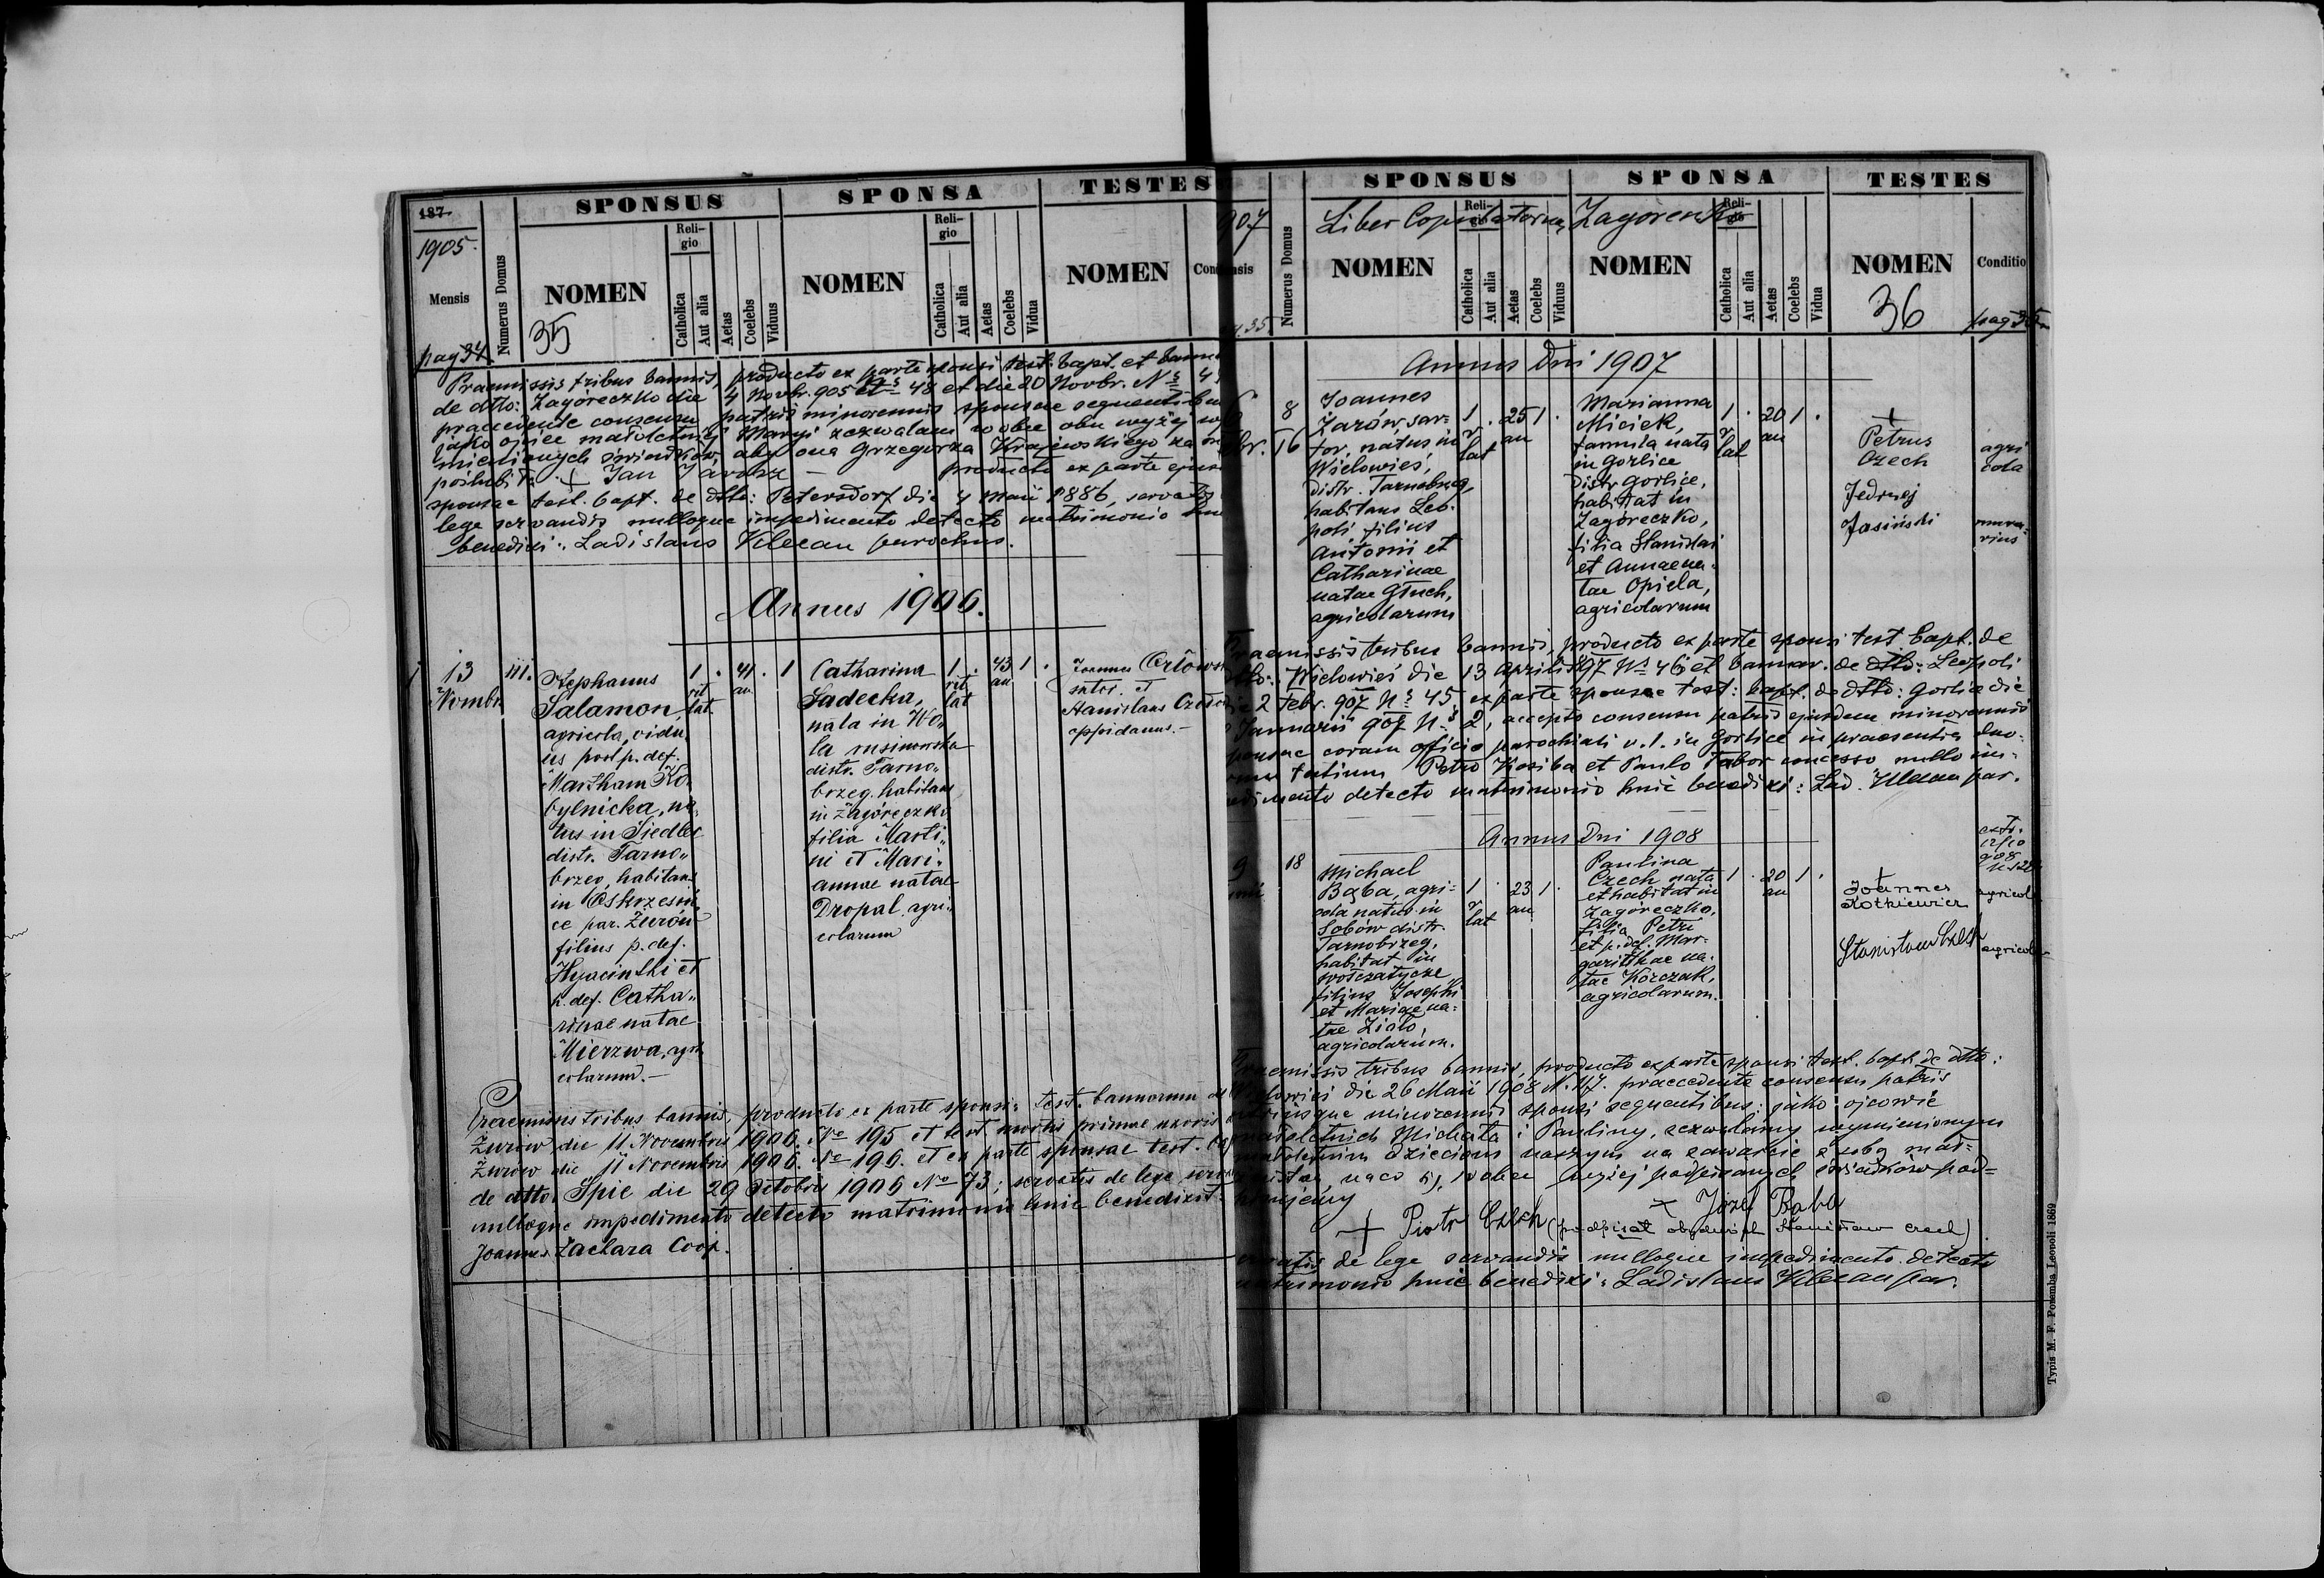 187
1905.
Mensis
pag 34
Numerus Domus
SPONSUS
NOMEN
35
Reli-
gio
Catholica
Aut alia
Aetas
Coelebs
Viduus
SPONSA
NOMEN
Reli-
gio
Catholica
Aut alia
Aetas
Coelebs
Vidua
TESTES
NOMEN
Praemissis tribus bannis, producto ex parte sponsi test. bapt. et
de dtto: Zagóreczko die 4 Novbr. 905 48 et die 20 Novbr. N
praecedente consensu patris minorennis sponsae
jako ojciec małoletniej Maryi zezwalam wobec obu wyżej
świadków, aby ona Grzegorza Krajewskiego za
poślubiła. + Jan Jarosz — producto ex parte
sponsae test. bapt. de dtto: Petersdorf die 4 Maii 1886, servatis
lege servandis nulloque impedimento detecto matrimonio
benedixi: Ladislaus parochus.
Annus 1906.
13
Novmbr
111.
Stephanus
Salamon,
agricola, vidu
us post p. def.
Martham Ko
bylnicka, na
tus in Siedlec
distr. Tarno„
brzeg, habitans
in Oskrzesin
ce par. Żurów
filius p. def.
Hyacinthi et
p. def. Catha„
rinae natae
Mierzwa, agri
colarum.—
1
rit
lat
.
41
an
.
1
Catharina
Sadecka,
nata in Wo
la
distr. Tarno„
brzeg. habitans
in Zagóreczko
filia Marti„
ni et Mari„
annae natae
Dropal, agri„
colarum
1
rit
lat
.
43
an
1
.
Joannes
sutor. et
Stanislaus
oppidanus.—
Praemissis tribus bannis, producto ex parte sponsi: test. bannorum
Żurów die 11 Novembris 1906. No 195 et test mortis primae uxoris
Żurów die 11 Novembris 1906. No 196. et ex parte sponsae test.
de dtto Spie die 29 Octobris 1906 No 73; servatis de lege
nulloque impedimento detecto matrimonio huic benedixit:
Joannes Zachara Coop.
907
Numerus Domus
SPONSUS
Liber Copulatorum Zagórecko
NOMEN
Reli-
gio
Catholica
Aut alia
Aetas
Coelebs
Viduus
SPONSA
NOMEN
Reli-
gio
Catholica
Aut alia
Aetas
Coelebs
Vidua
TESTES
NOMEN
36
Conditio
Annus Dni 1907
8
16
Joannes
Żarów, sar-
tor, natus in
Wielowieś,
distr. Tarnobrzeg,
habitans Leo-
poli filius
Antonii et
Catharinae
natae Głuch,
agricolarum
1
r
lat
.
25
an
1
.
Marianna
Miciek,
famula nata
in Gorlice
distr Gorlice,
habitat in
Zagóreczko,
filia Stanislai
et Annae na-
tae Opiela,
agricolarum
1
r
lat
.
20
an
1
.
+
Petrus
Czech
agri
cola
Jędrzej
Jasiński
mura-
rius
Praemissis tribus bannis, producto ex parte sponsi test bapt. de
dtto: Wielowieś die 13 Aprilis 897 No 46 et bannor. de dtto: Leopoli
die 2 Febr. 907 No 45, ex parte sponsae test: bapt. de dtto: Gorlice die
Januarii 907 No 2, accepto consensu patris ejusdem minorennis
sponsae coram officio parochiali r. l. in Gorlice in praesentia duo-
rum testium Petro Kosiba et Paulo Tabor concesso nullo im-
pedimento detecto matrimonio huic benedixi: Lad. par.
Annus Dni 1908
9
18
Michael
Bąba, agri-
cola natus in
Sobów distr.
Tarnobrzeg,
habitat in
Wołczatycze
filius Josephi
et Mariae na-
tae Ziało,
agricolarum.
1
r
lat
.
23
an
1
.
Paulina
Czech nata
et habitat in
Zagóreczko,
filia Petri
et p. def. Mar-
garithae na-
tae Korczak,
agricolarum.
1
.
20
an
1
.
+
Joannes
Kotkiewicz
agricola
Stanisław Czech
agricola
Praemissis tribus bannis, producto ex parte sponsi test. bapt. de dtto:
Wielowieś die 26 Maii 1908 N. 117. praecedente consensu patris
utriusque minorennis sponsi sequentibus: jako ojcowie
małoletnich Michała i Pauliny, zezwalamy wymienionym
małoletnim dzieciom naszym na zawarcie z sobą mał-
żeństwa, na co się wobec wyżej podpisanych świadków pod-
pisujemy
+ Piotr Czech × Józef Bąba
(podpisał obydwóch Stanisław Czech)
servatis de lege servandis nulloque impedimento detecto
matrimonio huic benedixi: Ladislaus par.
Typis M. F. Poremba Leopoli 1869